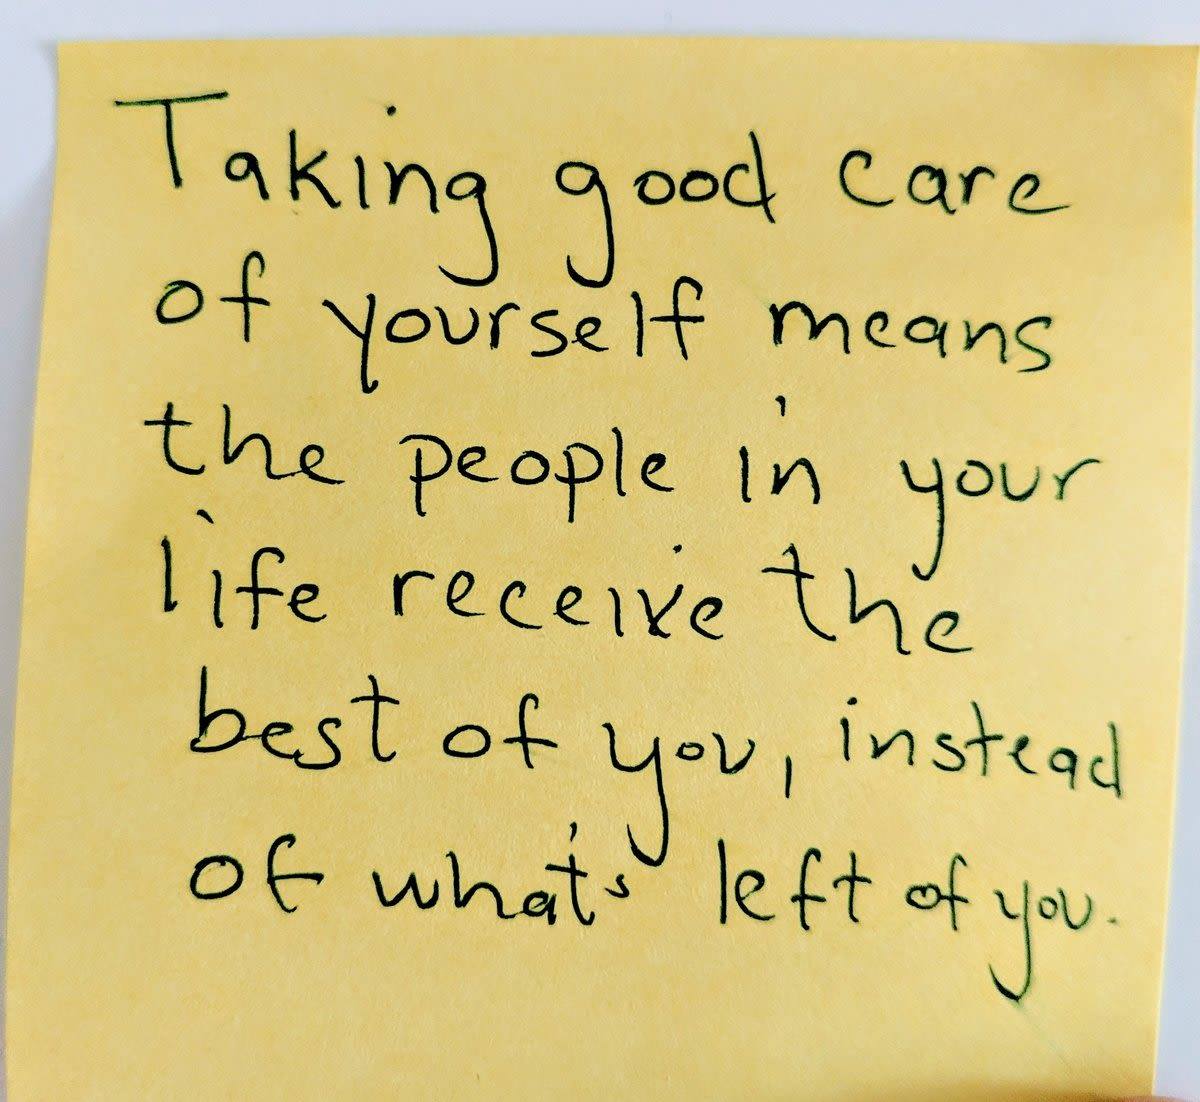 Taking good care
of yourself means
the people in your
life receive the
best of you, instead
of what's left of you.